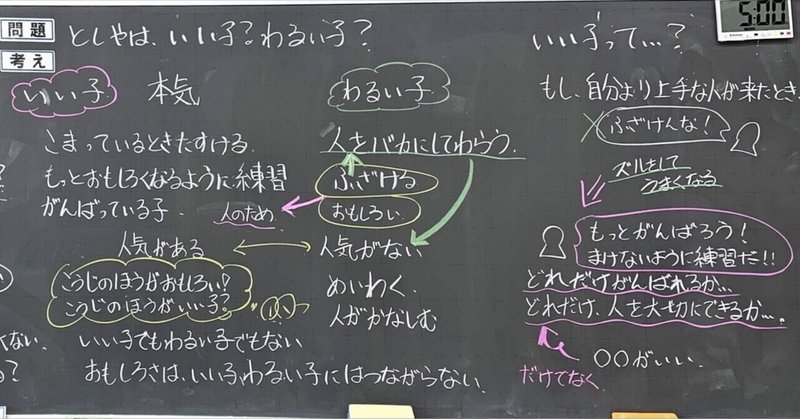 問題
としやは、いい子?わるい子?
考え
いい子
本気
こまっているときたすける
もっとおもしろくなるように練習
がんばっている子
人のため
人気がある
こうじのほうがおもしろい!
こうじのほうがいい子?
いい子でもわるい子でもない
おもしろさは、いい子、わるい子にはつながらない。
わるい子
人をバカにしてわらう
ふざける
おもしろい
人気がない
めいわく
人がかなしむ
5:00
いい子って…?
もし、自分より上手な人が来たとき、
ふざけんな!
ズルをして
うまくなる
もっとがんばろう!
まけないように練習だ!!
どれだけがんばれるか…
どれだけ、人を大切にできるか…。
だけでなく
〇〇がいい。
くない。
る?